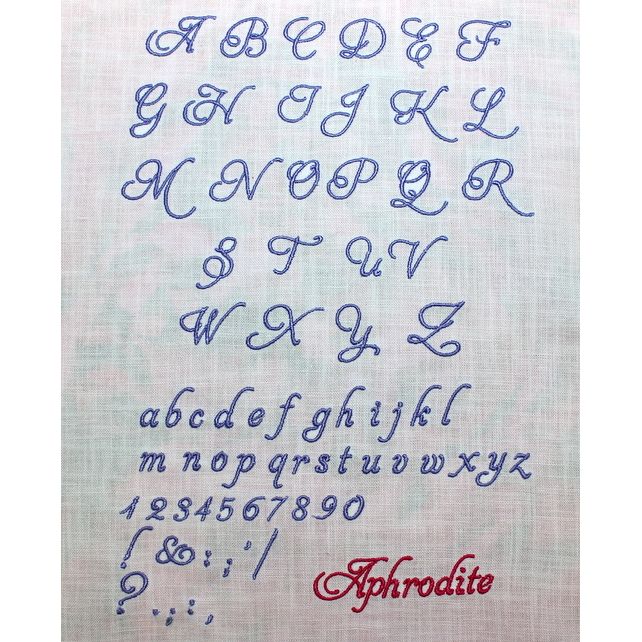 A B C D E F
G H I J K L
M N O P Q R
S T U V
W X Y Z
a b c d e f g h i j k l
m n o p q r s t u v w x y z
1 2 3 4 5 6 7 8 9 0
! & : ; ' /
? . ; : ,
Aphrodite